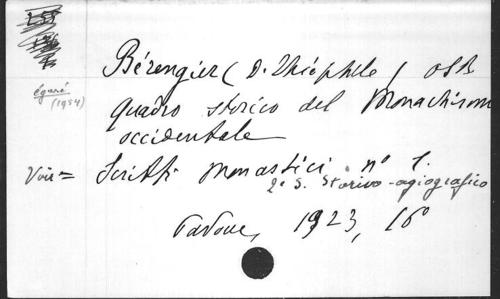 égaré
(1954)
Bérengier (D. Théophile) OSB
Quadro storico del Monachismo
occidentale
Voir = Scritti monastici n° 1.
2e S. Storico-agiografico
Padoue, 1923, 16°